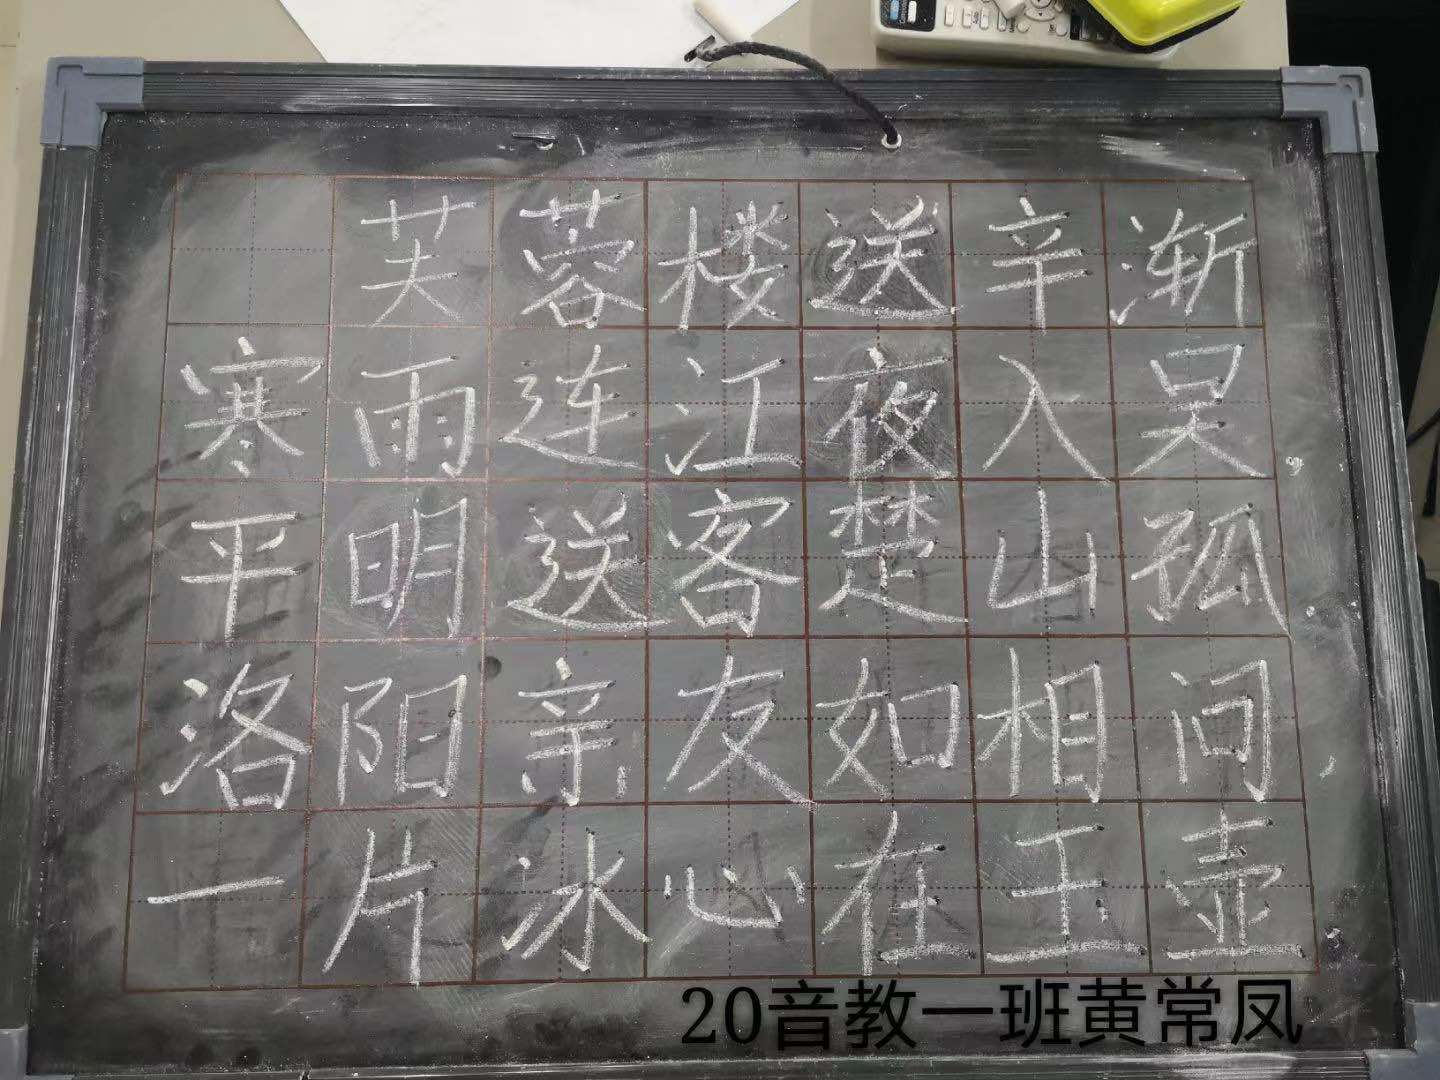 芙蓉楼送辛渐
寒雨连江夜入吴
平明送客楚山孤
洛阳亲友如相问
一片冰心在玉壶
20音教一班黄常凤